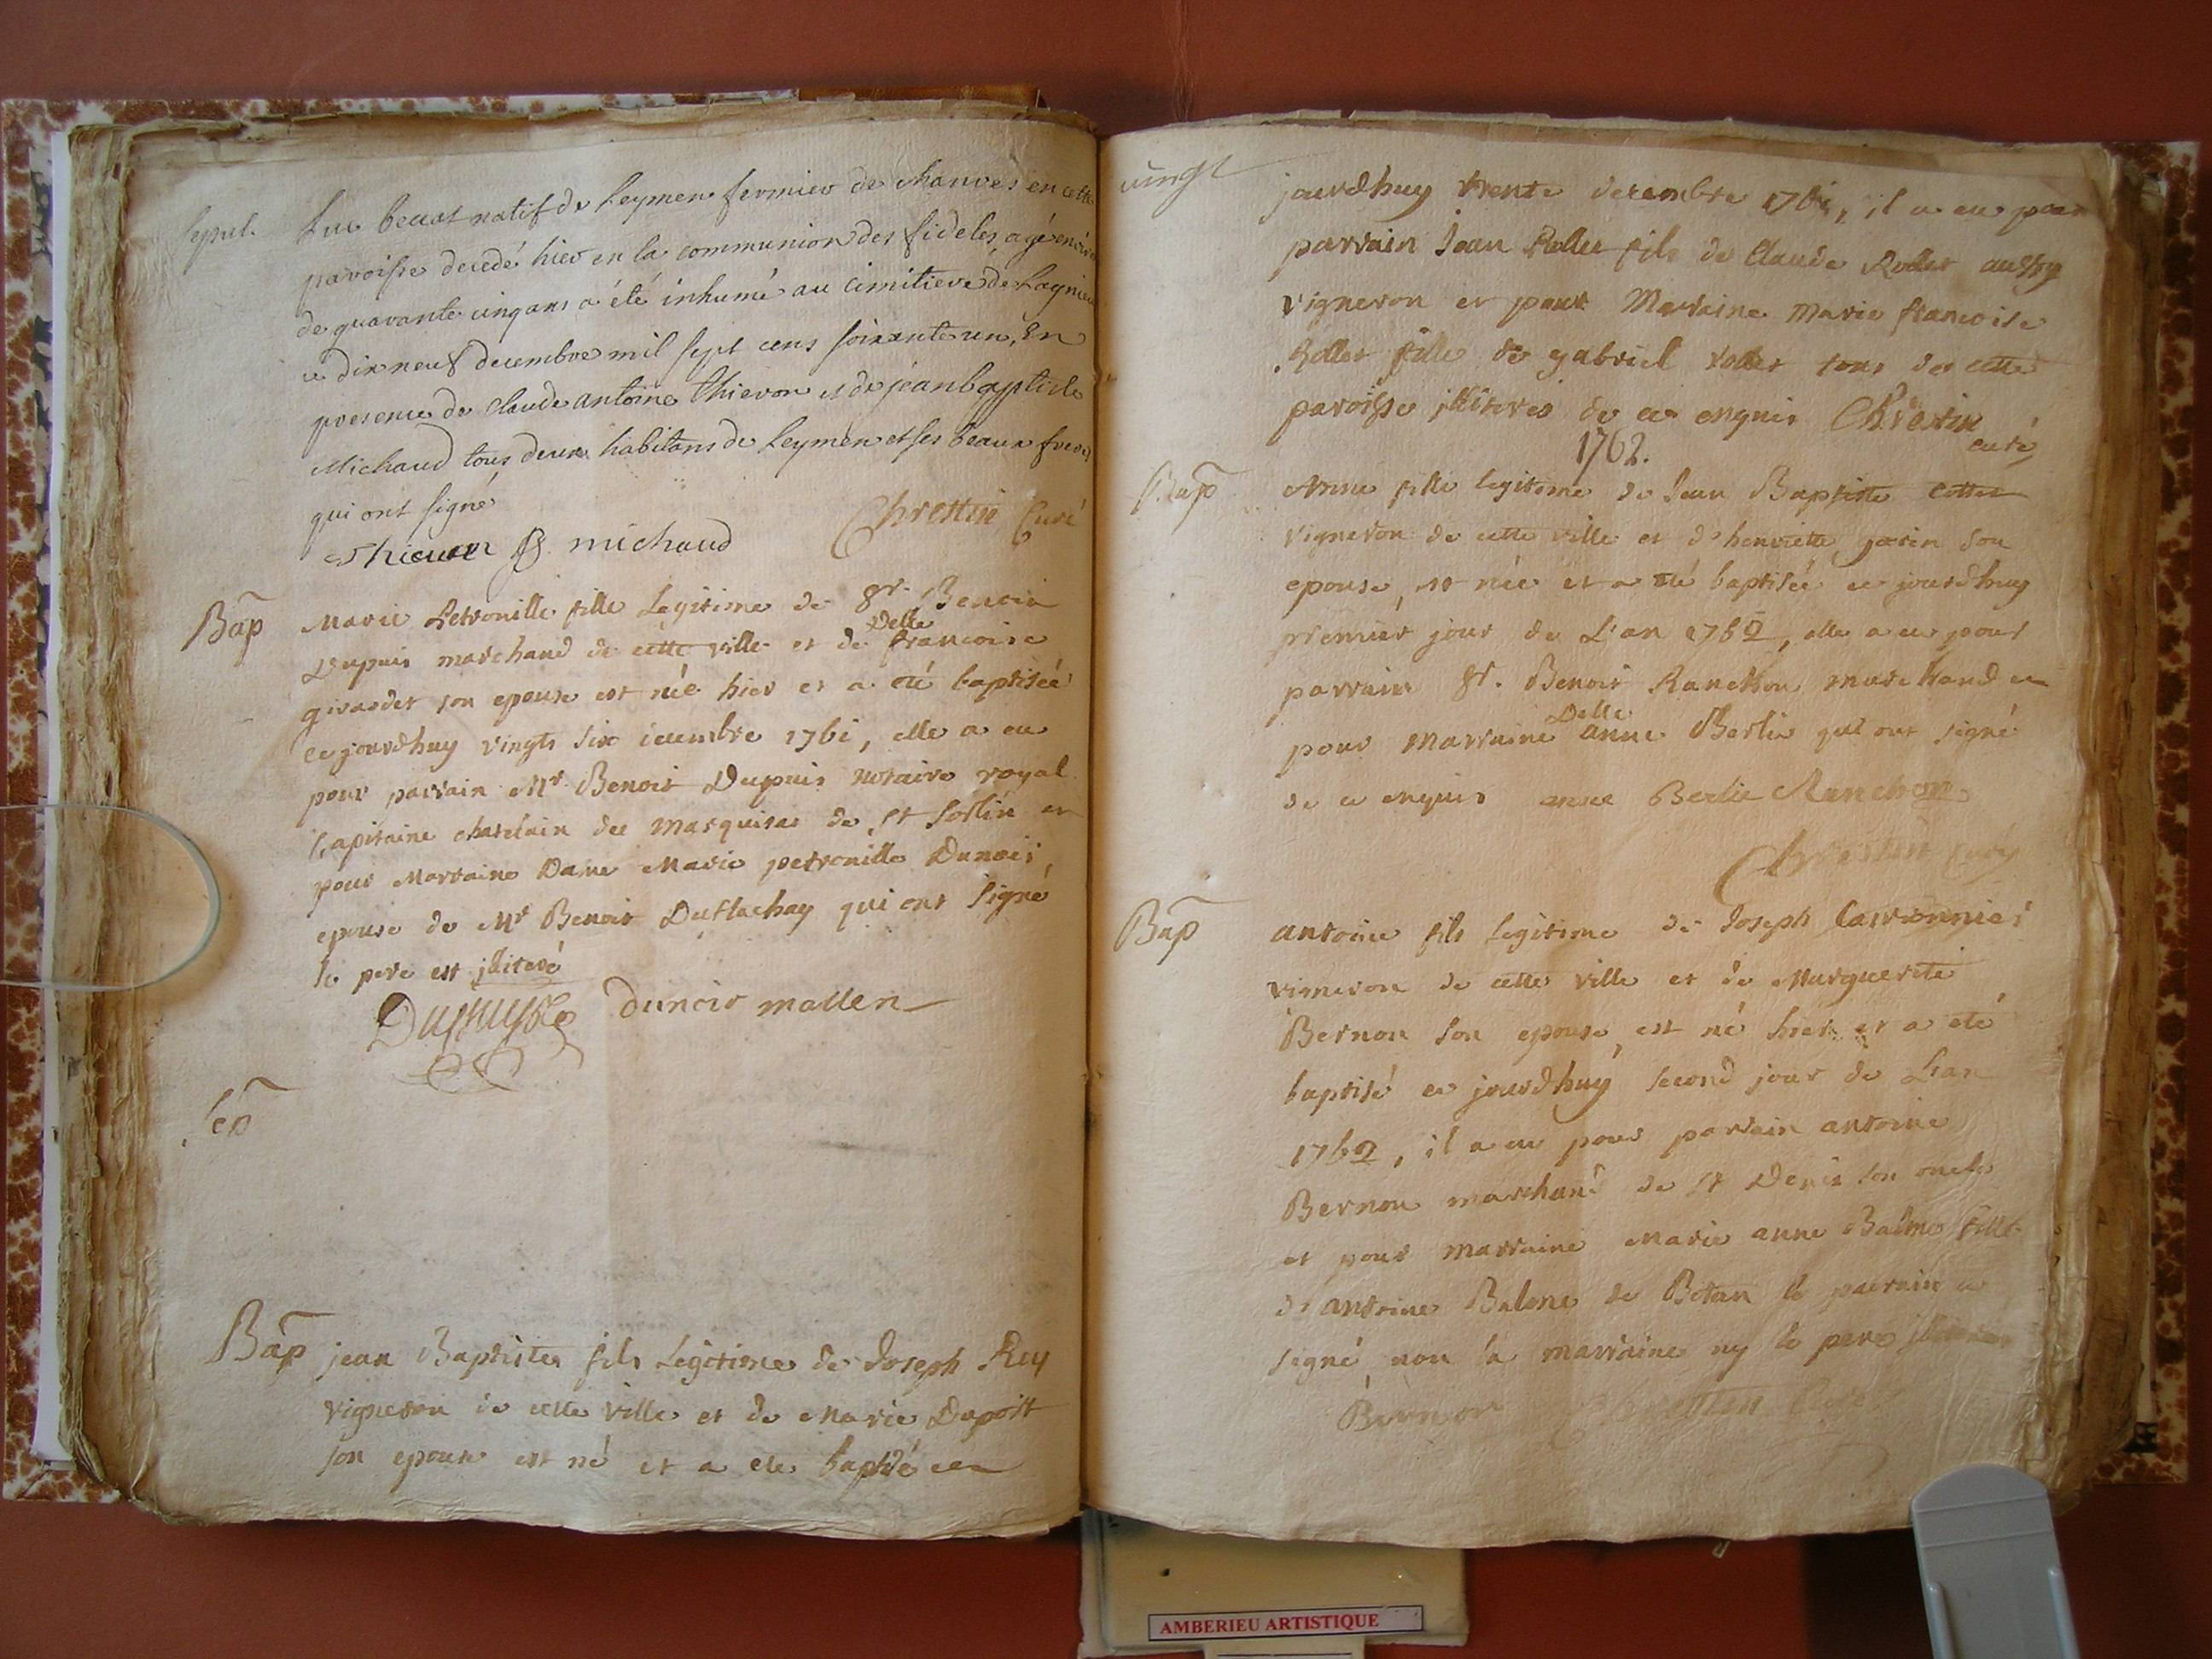 Sepul. Luc beccat natif de Leymen fermier de chanves en cette
paroisse decedé hier en la communion des fideles, agé environ
de quarante cinq ans a été inhumé au cimitiere de Lagnieu
ce dix neuf decembre mil sept cens soixante un, En
presence de Claude antoine Thievon et de jean baptiste
Michaud tous deux habitans de Leymen et ses beaux freres
qui ont signé
Chrestin Curé
Thievon michaud
Bap Marie Petronille fille Legitime de Sr. Benoit
Delle
Dupuis marchand de cette ville et de francoise
girardet son epouse est née hier et a été baptisée
ce jourdhuy vingts six decembre 1761, elle a eu
pour parrain Mr Benoit Dupuis notaire royal
Capitaine chatelain du Marquisat de St Sorlin et
pour Marraine Dame Marie petronille Dunoir
epouse de Mr Benoit Duflachay qui ont signé
le pere est illiteré
Dupuis dunoir mallen
Bap jean Baptiste fils Legitime de Joseph Rey
vigneron de cette ville et de Marie Dupoit
son epouse est né et a été baptisé ce
vingt
jourdhuy trente decembre 1761, il a eu pour
parrain Jean Rollet fils de Claude Rollet aussy
vigneron et pour Marraine Marie francoise
Rollet fille de gabriel rollet tous de cette
paroisse illiteres de ce enquis Chrestin
curé
1762.
Bap Anne fille legitime de Jean Baptiste Cottet
vigneron de cette ville et d'henriette jarin son
epouse, est née et a été baptisée ce jourdhuy
premier jour de L'an 1762, elle a eu pour
parrain Sr. Benoit Ranchon marchand et
Delle
pour Marraine anne Berlie qui ont signé
de ce enquis anne Berlie Ranchon
Chrestin Curé
Bap antoine fils legitime de Joseph Carronnier
vigneron de cette ville et de Marguerite
Bernon son epouse, est né hier et a été
baptisé ce jourdhuy second jour de L'an
1762, il a eu pour parrain antoine
Bernon marchand de St Denis son oncle
et pour marraine Marie anne Balme fille
d'antoine Balme de Bétan le parrain a
signé non la marraine ny le pere
Bernon Chrestin Curé
AMBERIEU ARTISTIQUE